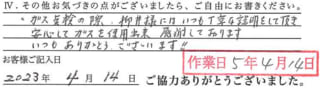 Ⅳ.その他お気づきの点がございましたら、ご自由にお書きください。
ガス点検の際、柳井様にはいつも丁寧な説明をして頂き
安心してガスを使用出来、感謝しております
いつもありがとうございます!!
お客様ご記入日
作業日 5年4月14日
2023年 4月 14日 ご協力ありがとうございました。